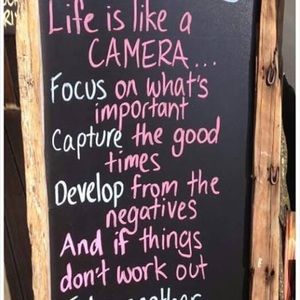 Life is like a
CAMERA...
Focus on what's
important
Capture the good
times
Develop from the
negatives
And if things
don't work out